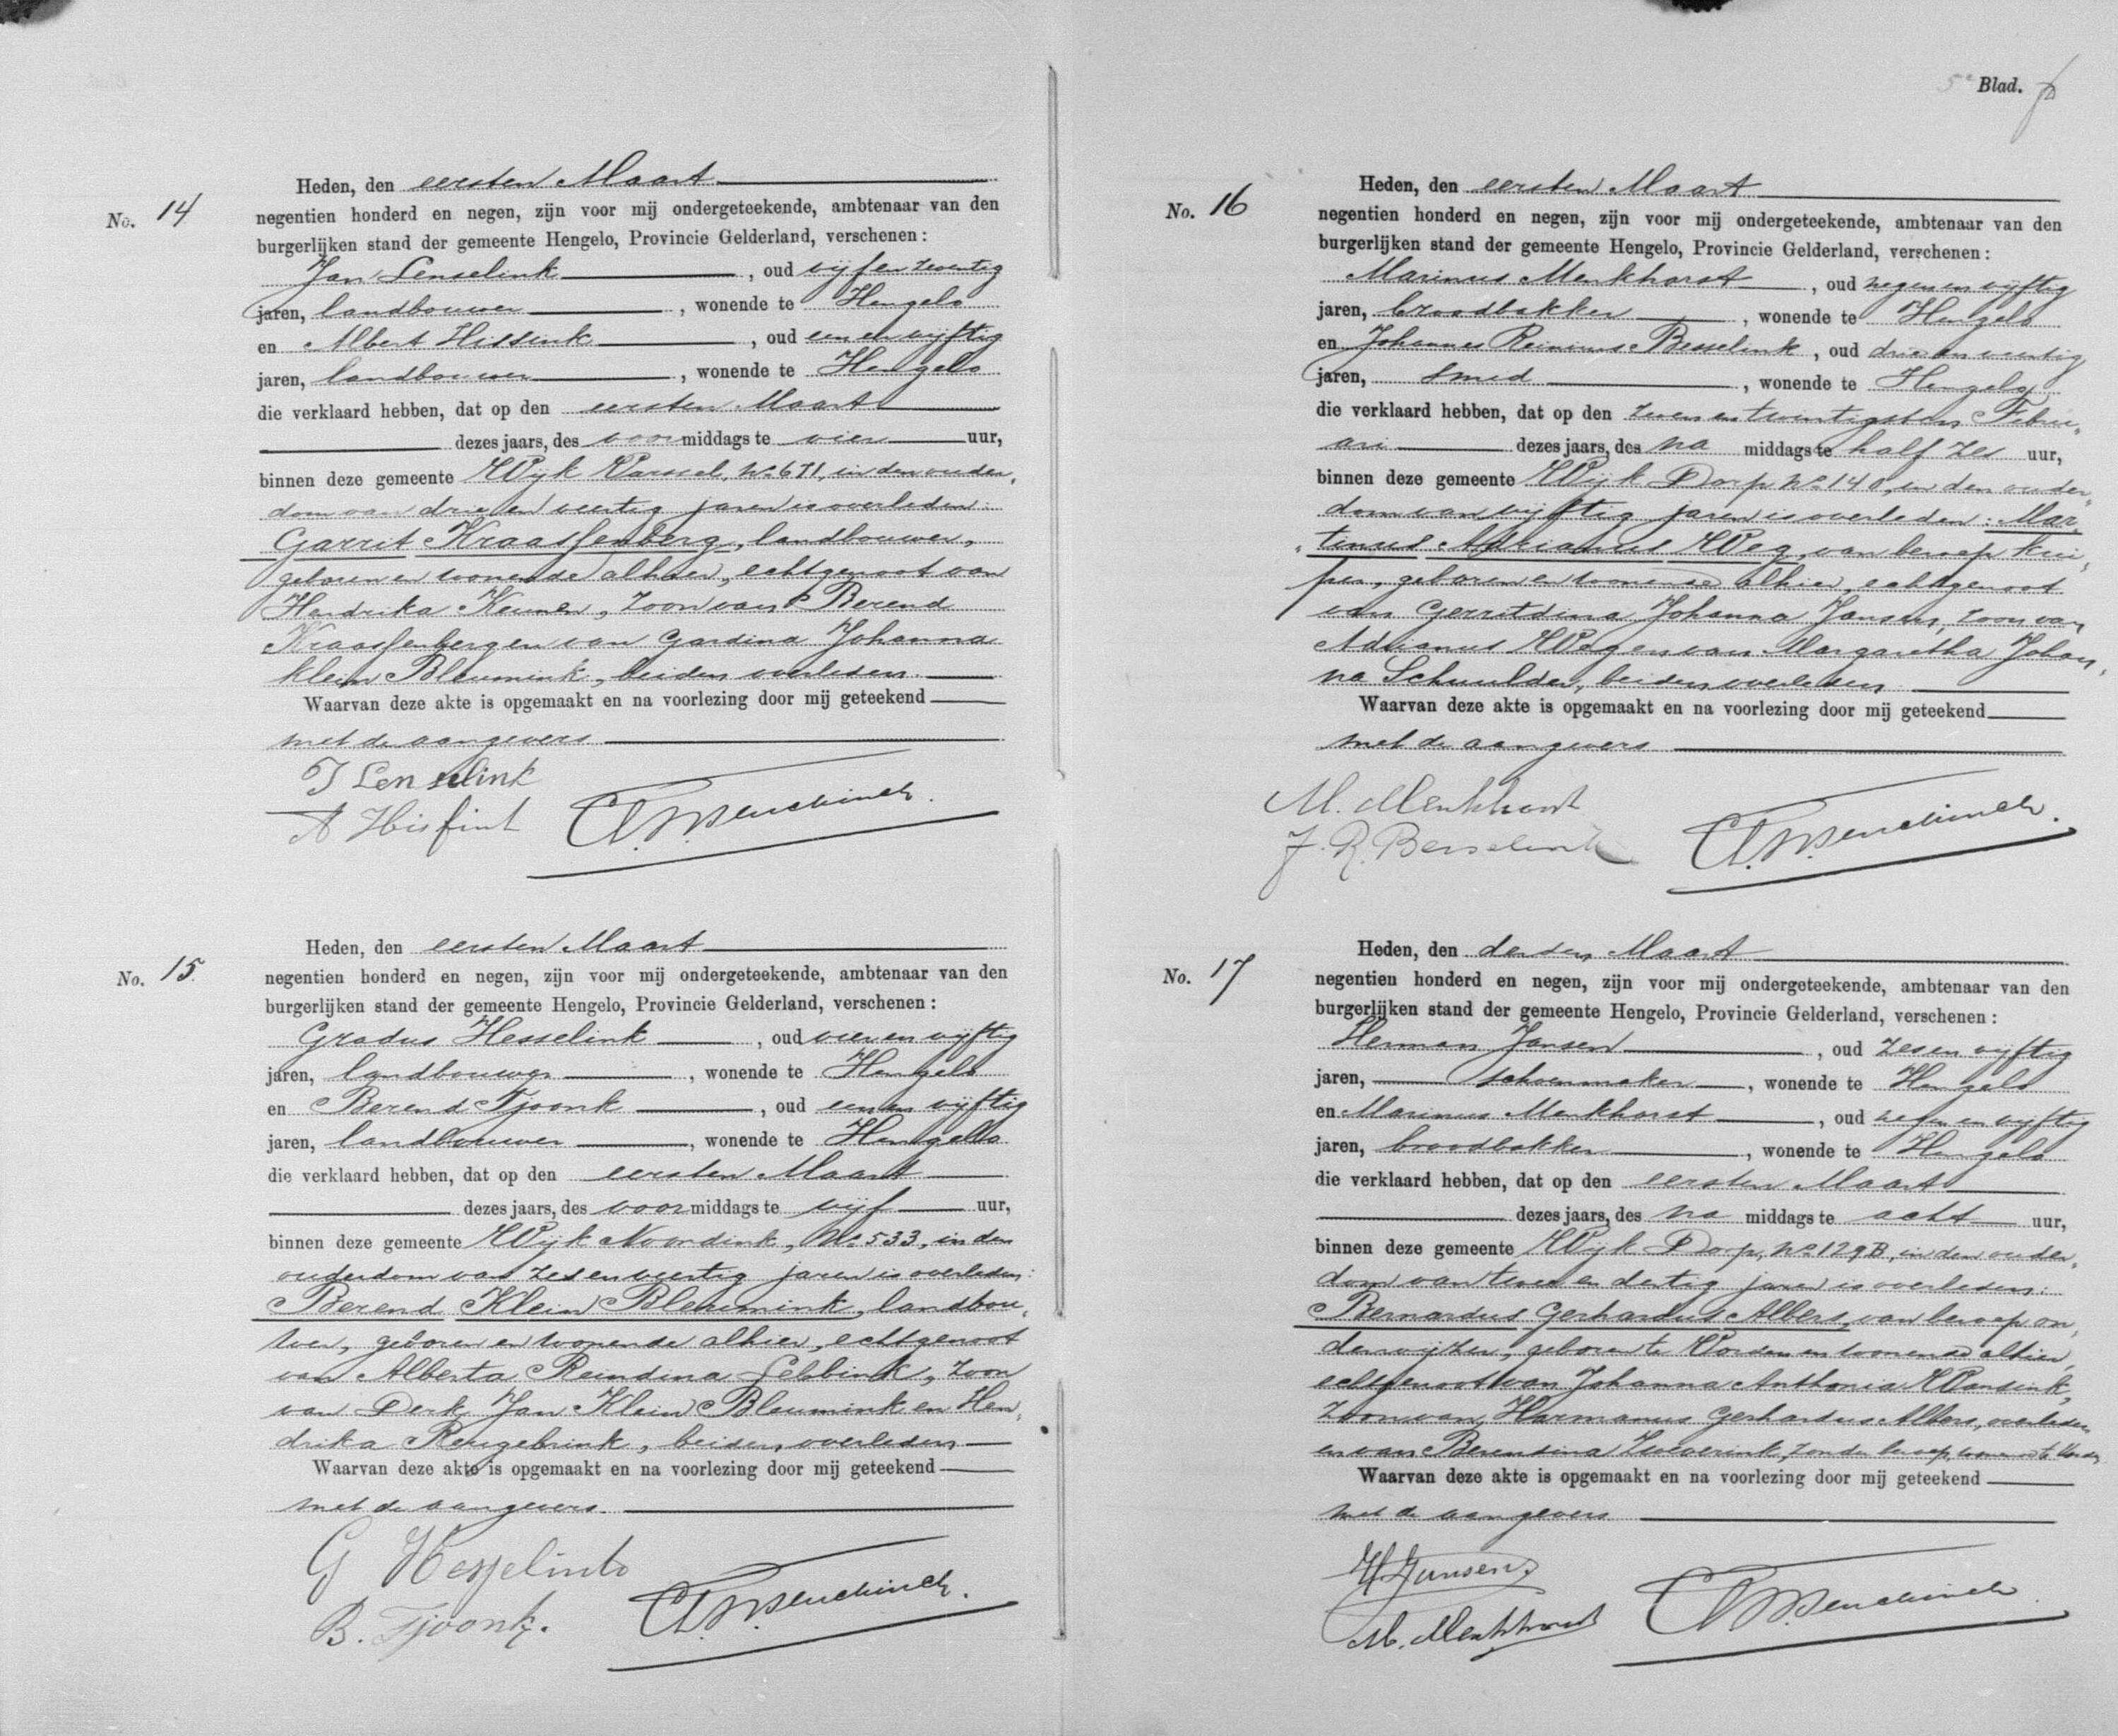 No. 14
Heden, den eersten Maart
negentien honderd en negen, zijn voor mij ondergeteekende, ambtenaar van den
burgerlijken stand der gemeente Hengelo, Provincie Gelderland, verschenen:
Jan Lenselink, oud vijf en zeventig
jaren, landbouwer, wonende te Hengelo
en Albert Hissink, oud een en vijftig
jaren, landbouwer, wonende te Hengelo
die verklaard hebben, dat op den eersten Maart
dezes jaars, des voormiddags te vier uur,
binnen deze gemeente Wijk Varssel, No 671, in den ouder„
dom van drie en veertig jaren is overleden:
Garrit Kraassenberg, landbouwer,
geboren en wonende alhier, echtgenoot van
Hendrika Keunen, zoon van Berend
Kraassenberg en van Gardina Johanna
klein Bleumink, beiden overleden.
Waarvan deze akte is opgemaakt en na voorlezing door mij geteekend
met de aangevers
J Lenselink
A Hissink
No. 15.
Heden, den eersten Maart
negentien honderd en negen, zijn voor mij ondergeteekende, ambtenaar van den
burgerlijken stand der gemeente Hengelo, Provincie Gelderland, verschenen:
Gradus Hesselink, oud vier en vijftig
jaren, landbouwer, wonende te Hengelo
en Berend Tjoonk, oud een en vijftig
jaren, landbouwer, wonende te Hengelo
die verklaard hebben, dat op den eersten Maart
dezes jaars, des voormiddags te vijf uur,
binnen deze gemeente Wijk Noordink, No 533, in den
ouderdom van zes en veertig jaren is overleden:
Berend Klein Bleumink, landbou„
wer, geboren en wonende alhier, echtgenoot
van Alberta Reindina Lebbink, zoon
van Derk Jan Klein Bleumink en Hen„
drika Reugebrink, beiden overleden
Waarvan deze akte is opgemaakt en na voorlezing door mij geteekend
met de aangevers.
G Hesselink
B. Tjoonk.
5e Blad.
No. 16
Heden, den eersten Maart
negentien honderd en negen, zijn voor mij ondergeteekende, ambtenaar van den
burgerlijken stand der gemeente Hengelo, Provincie Gelderland, verschenen:
Marinus Menkhorst, oud negen en vijftig
jaren, broodbakker, wonende te Hengelo
en Johannes Reinirus Besselink, oud drie en veertig
jaren, smid, wonende te Hengelo
die verklaard hebben, dat op den zeven en twintigsten Febru„
ari dezes jaars, des na middags te half zes uur,
binnen deze gemeente Wijk Dorp No 140, in den ouder„
dom van vijftig jaren is overleden: Mar„
„tinus Adrianus Weg, van beroep kui„
per, geboren en wonende alhier, echtgenoot
van Gerritdina Johanna Jansen, zoon van
Adrianus Weg en van Margaretha Johan„
na Schuulder, beiden overleden
Waarvan deze akte is opgemaakt en na voorlezing door mij geteekend
met de aangevers
M. Menkhorst
J. R. Besselink
No. 17
Heden, den derden Maart
negentien honderd en negen, zijn voor mij ondergeteekende, ambtenaar van den
burgerlijken stand der gemeente Hengelo, Provincie Gelderland, verschenen:
Herman Jansen, oud zes en vijftig
jaren, schoenmaker, wonende te Hengelo
en Marinus Menkhorst, oud negen en vijftig
jaren, broodbakker, wonende te Hengelo
die verklaard hebben, dat op den eersten Maart
dezes jaars, des na middags te acht uur,
binnen deze gemeente Wijk Dorp, No 129B, in den ouder„
dom van twee en dertig jaren is overleden:
Bernardus Gerhardus Albers, van beroep on„
derwijzer, geboren te Vorden en wonende alhier,
echtgenoot van Johanna Anthonia Wansink,
zoon van Harmanus Gerhardus Albers, overleden
en van Berendina Zweverink, zonder beroep, wonende te Vorden
Waarvan deze akte is opgemaakt en na voorlezing door mij geteekend
met de aangevers
H. Jansen
M. Menkhorst